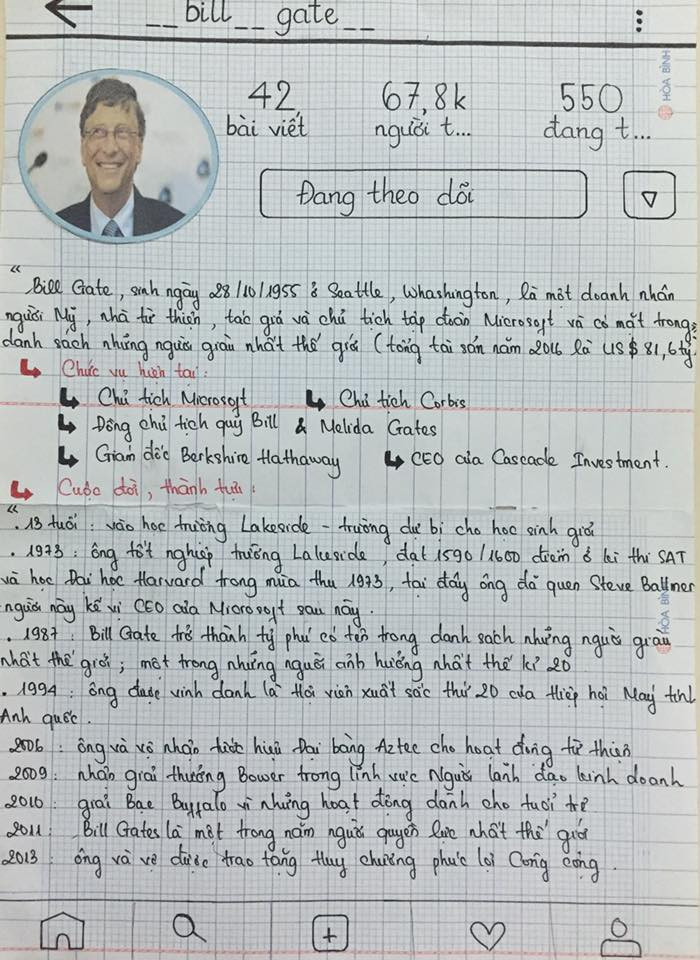 __bill__ gate__
42 67,8k 550
bài viết người t... đang t...
Đang theo dõi
HÒA BÌNH
"
Bill Gate, sinh ngày 28/10/1955 ở Seattle, Whashington, là một doanh nhân
người Mỹ, nhà từ thiện, tác giả và chủ tịch tập đoàn Microsoft và có mặt trong
danh sách những người giàu nhất thế giới (tổng tài sản năm 2016 là US$ 81,6 tỷ.
Chức vụ hiện tại:
Chủ tịch Microsoft Chủ tịch Corbis
Đồng chủ tịch quỹ Bill & Melida Gates
Giám đốc Berkshire Hathaway CEO của Cascade Investment.
Cuộc đời, thành tựu:
"
. 13 tuổi: vào học trường Lakeside - trường dự bị cho học sinh giỏi
. 1973: ông tốt nghiệp trường Lakeside, đạt 1590/1600 điểm ở kì thi SAT
và học Đại học Harvard trong mùa thu 1973, tại đây ông đã quen Steve Ballmer
người này kế vị CEO của Microsoft sau này.
HÒA BÌNH
. 1987: Bill Gate trở thành tỷ phú có tên trong danh sách những người giàu
nhất thế giới; một trong những người ảnh hưởng nhất thế kỉ 20
. 1994: ông được vinh danh là Hội viên xuất sắc thứ 20 của Hiệp hội Máy tính
Anh quốc.
2006: ông và vợ nhận tước hiệu Đại bàng Aztec cho hoạt động từ thiện
2009: nhận giải thưởng Bower trong lĩnh vực Người lãnh đạo kinh doanh
2010: giải Bạc Buffalo vì những hoạt động dành cho tuổi trẻ
2011: Bill Gates là một trong năm người quyền lực nhất thế giới
2013: ông và vợ được trao tặng Huy chương phúc lợi Công cộng.